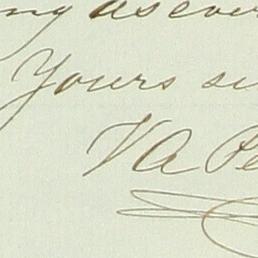 ng as ever
Yours si
V A Pe